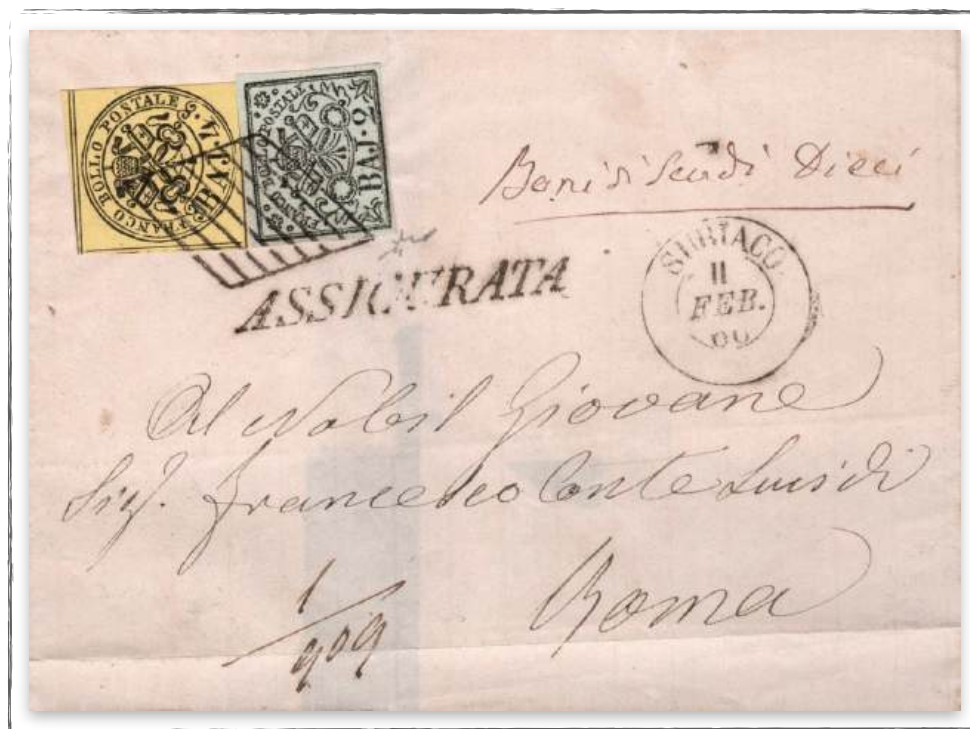 FRANCO BOLLO POSTALE
BAJ. 4
FRANCO BOLLO POSTALE
BAJ. 2
Boni di Scudi Dieci
ASSICURATA
SUBIACO
11
FEB.
60
Al Nobil Giovane
Sig. Francesco Conte
Roma
1
909